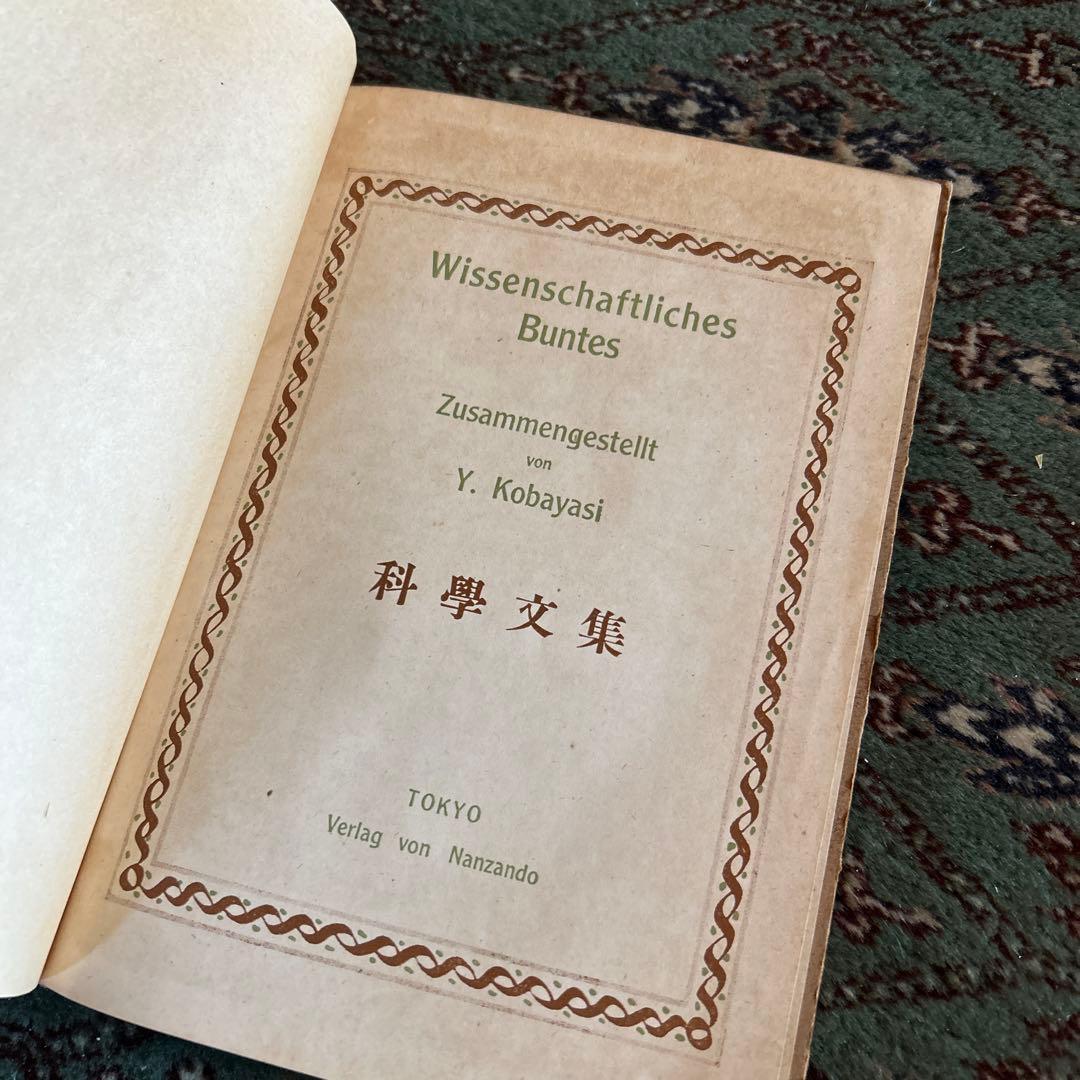 Wissenschaftliches
Buntes
Zusammengestellt
von
Y. Kobayasi
科學文集
TOKYO
Verlag von Nanzando